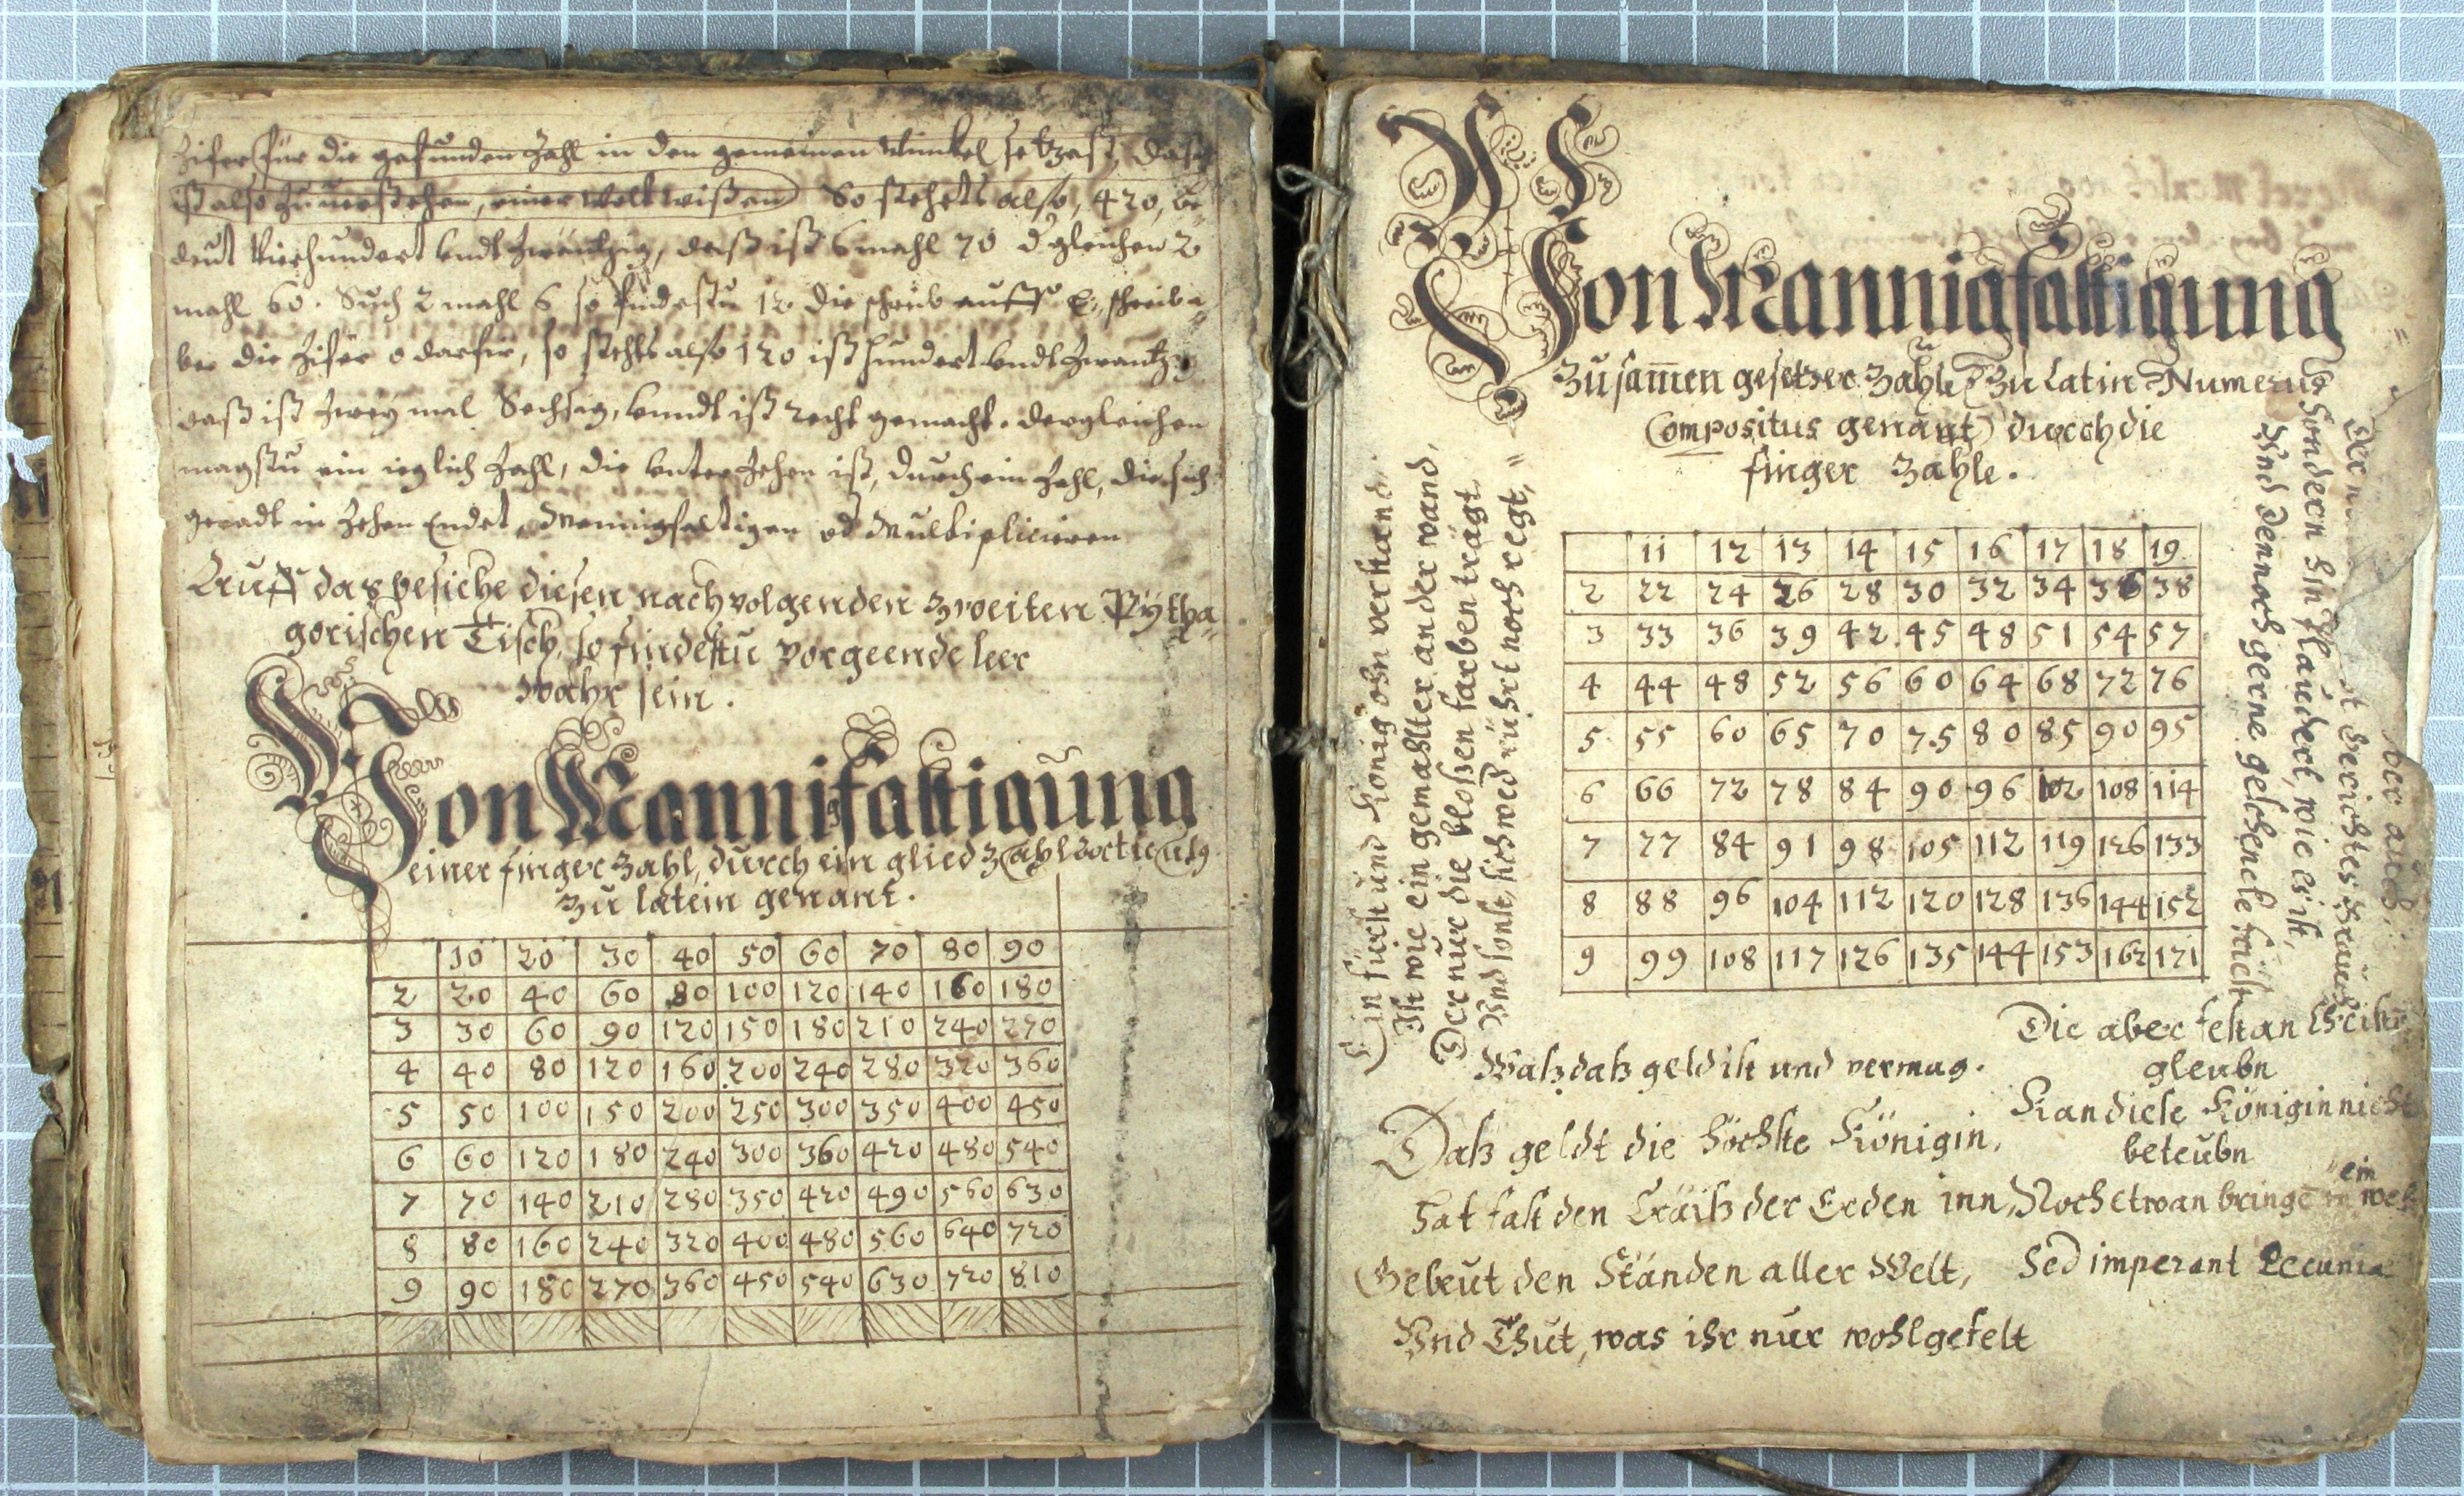 Zifer für die gefunden Zahl in den gemeinen Winkel setzest, daß
ist also zuuerstehen, einer Welt wißen) So stehets also, 420, be=
deut Vierhundert vndt zwantzig, daß ist 6 mahl 70 dgleichen 2
mahl 60. Such 2 mahl 6 so findestu 12 die schreib
ber die Zifer 0 darfir, so stehts also 120 ist hundert vndt zwantzig
daß ist zweÿ mal Sechzig, vnndt ist recht gemacht. dergleichen
magstu ein ieglich Zahl, die vnter Zehen ist, durch ein Zahl, die sich
geradt in Zehen Endet, Mannigfaltigen od Multiplicieren
Auff das besiehe diesen nachvolgenden zweiten Pÿtha=
gorischen Tisch, so findestu vorgeende leer
wahr sein.
Von Mannigfaltigung
einer finger Zahl, durch ein glied Zahl Articulg
zu latein genant.
10 20 30 40 50 60 70 80 90
2 20 40 60 80 100 120 140 160 180
3 30 60 90 120 150 180 210 240 270
4 40 80 120 160 200 240 280 320 360
5 50 100 150 200 250 300 350 400 450
6 60 120 180 240 300 360 420 480 540
7 70 140 210 280 350 420 490 560 630
8 80 160 240 320 400 480 560 640 720
9 90 180 270 360 450 540 630 720 810
Von Mannigfaltigung
zusam̄en gesetzer Zahle (zu latin Numerus
Compositus genant) durch die
finger Zahle.
11 12 13 14 15 16 17 18 19
2 22 24 26 28 30 32 34 36 38
3 33 36 39 42 45 48 51 54 57
4 44 48 52 56 60 64 68 72 76
5 55 60 65 70 75 80 85 90 95
6 66 72 78 84 90 96 102 108 114
7 77 84 91 98 105 112 119 126 133
8 88 96 104 112 120 128 136 144 152
9 99 108 117 126 135 144 153 162 171
Ein fürst und König ohn verstand,
Ist wie ein gemahlter an der wand,
Der nur die bloßen farben trägt
Vnd sonst sich wed rührt noch regt,
Sondern hin flaudert, wie es ist,
Vnd dennoch gerne geschencke frist
Waß daß geld ist und vermag.
Daß geldt die höchste Königin,
hat fast den Craiß der Erden inn,
Gebeut den Ständen aller Welt,
Vnd Thut, was ihr nur wohlgefelt
Die aber fest an
gleubn
Kan diese Königin nicht
beteubn
Noch etwan bringe
ein
Sed imperant Pecunia